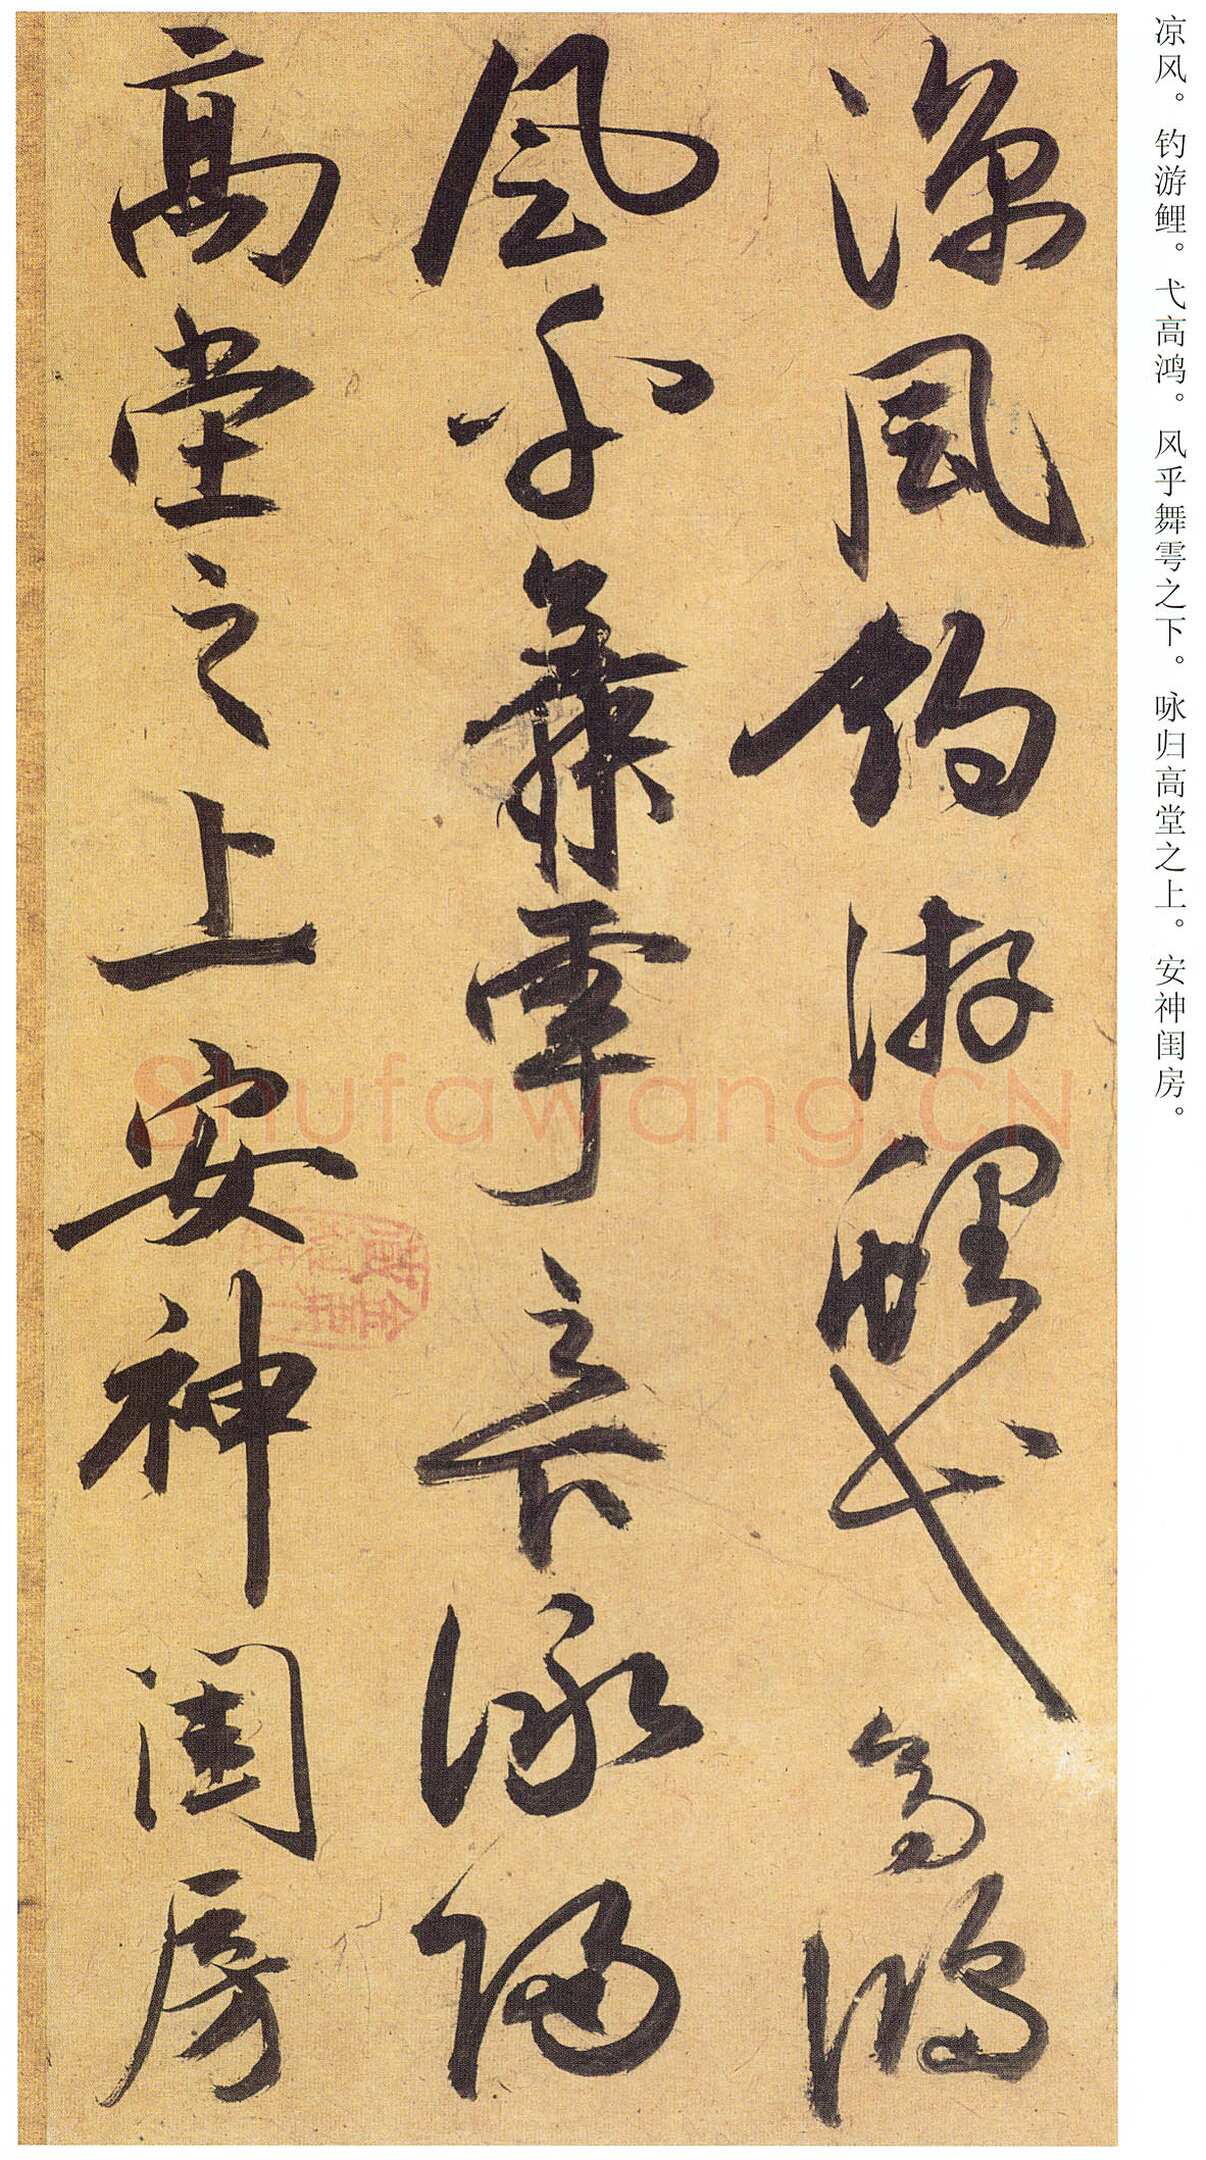 凉风。钓游鲤。弋高鸿。风乎舞雩之下。咏归高堂之上。安神闺房。
涼風釣游鯉弋高鴻
風乎舞雩之下詠歸
高堂之上安神閨房
Shufawang.CN